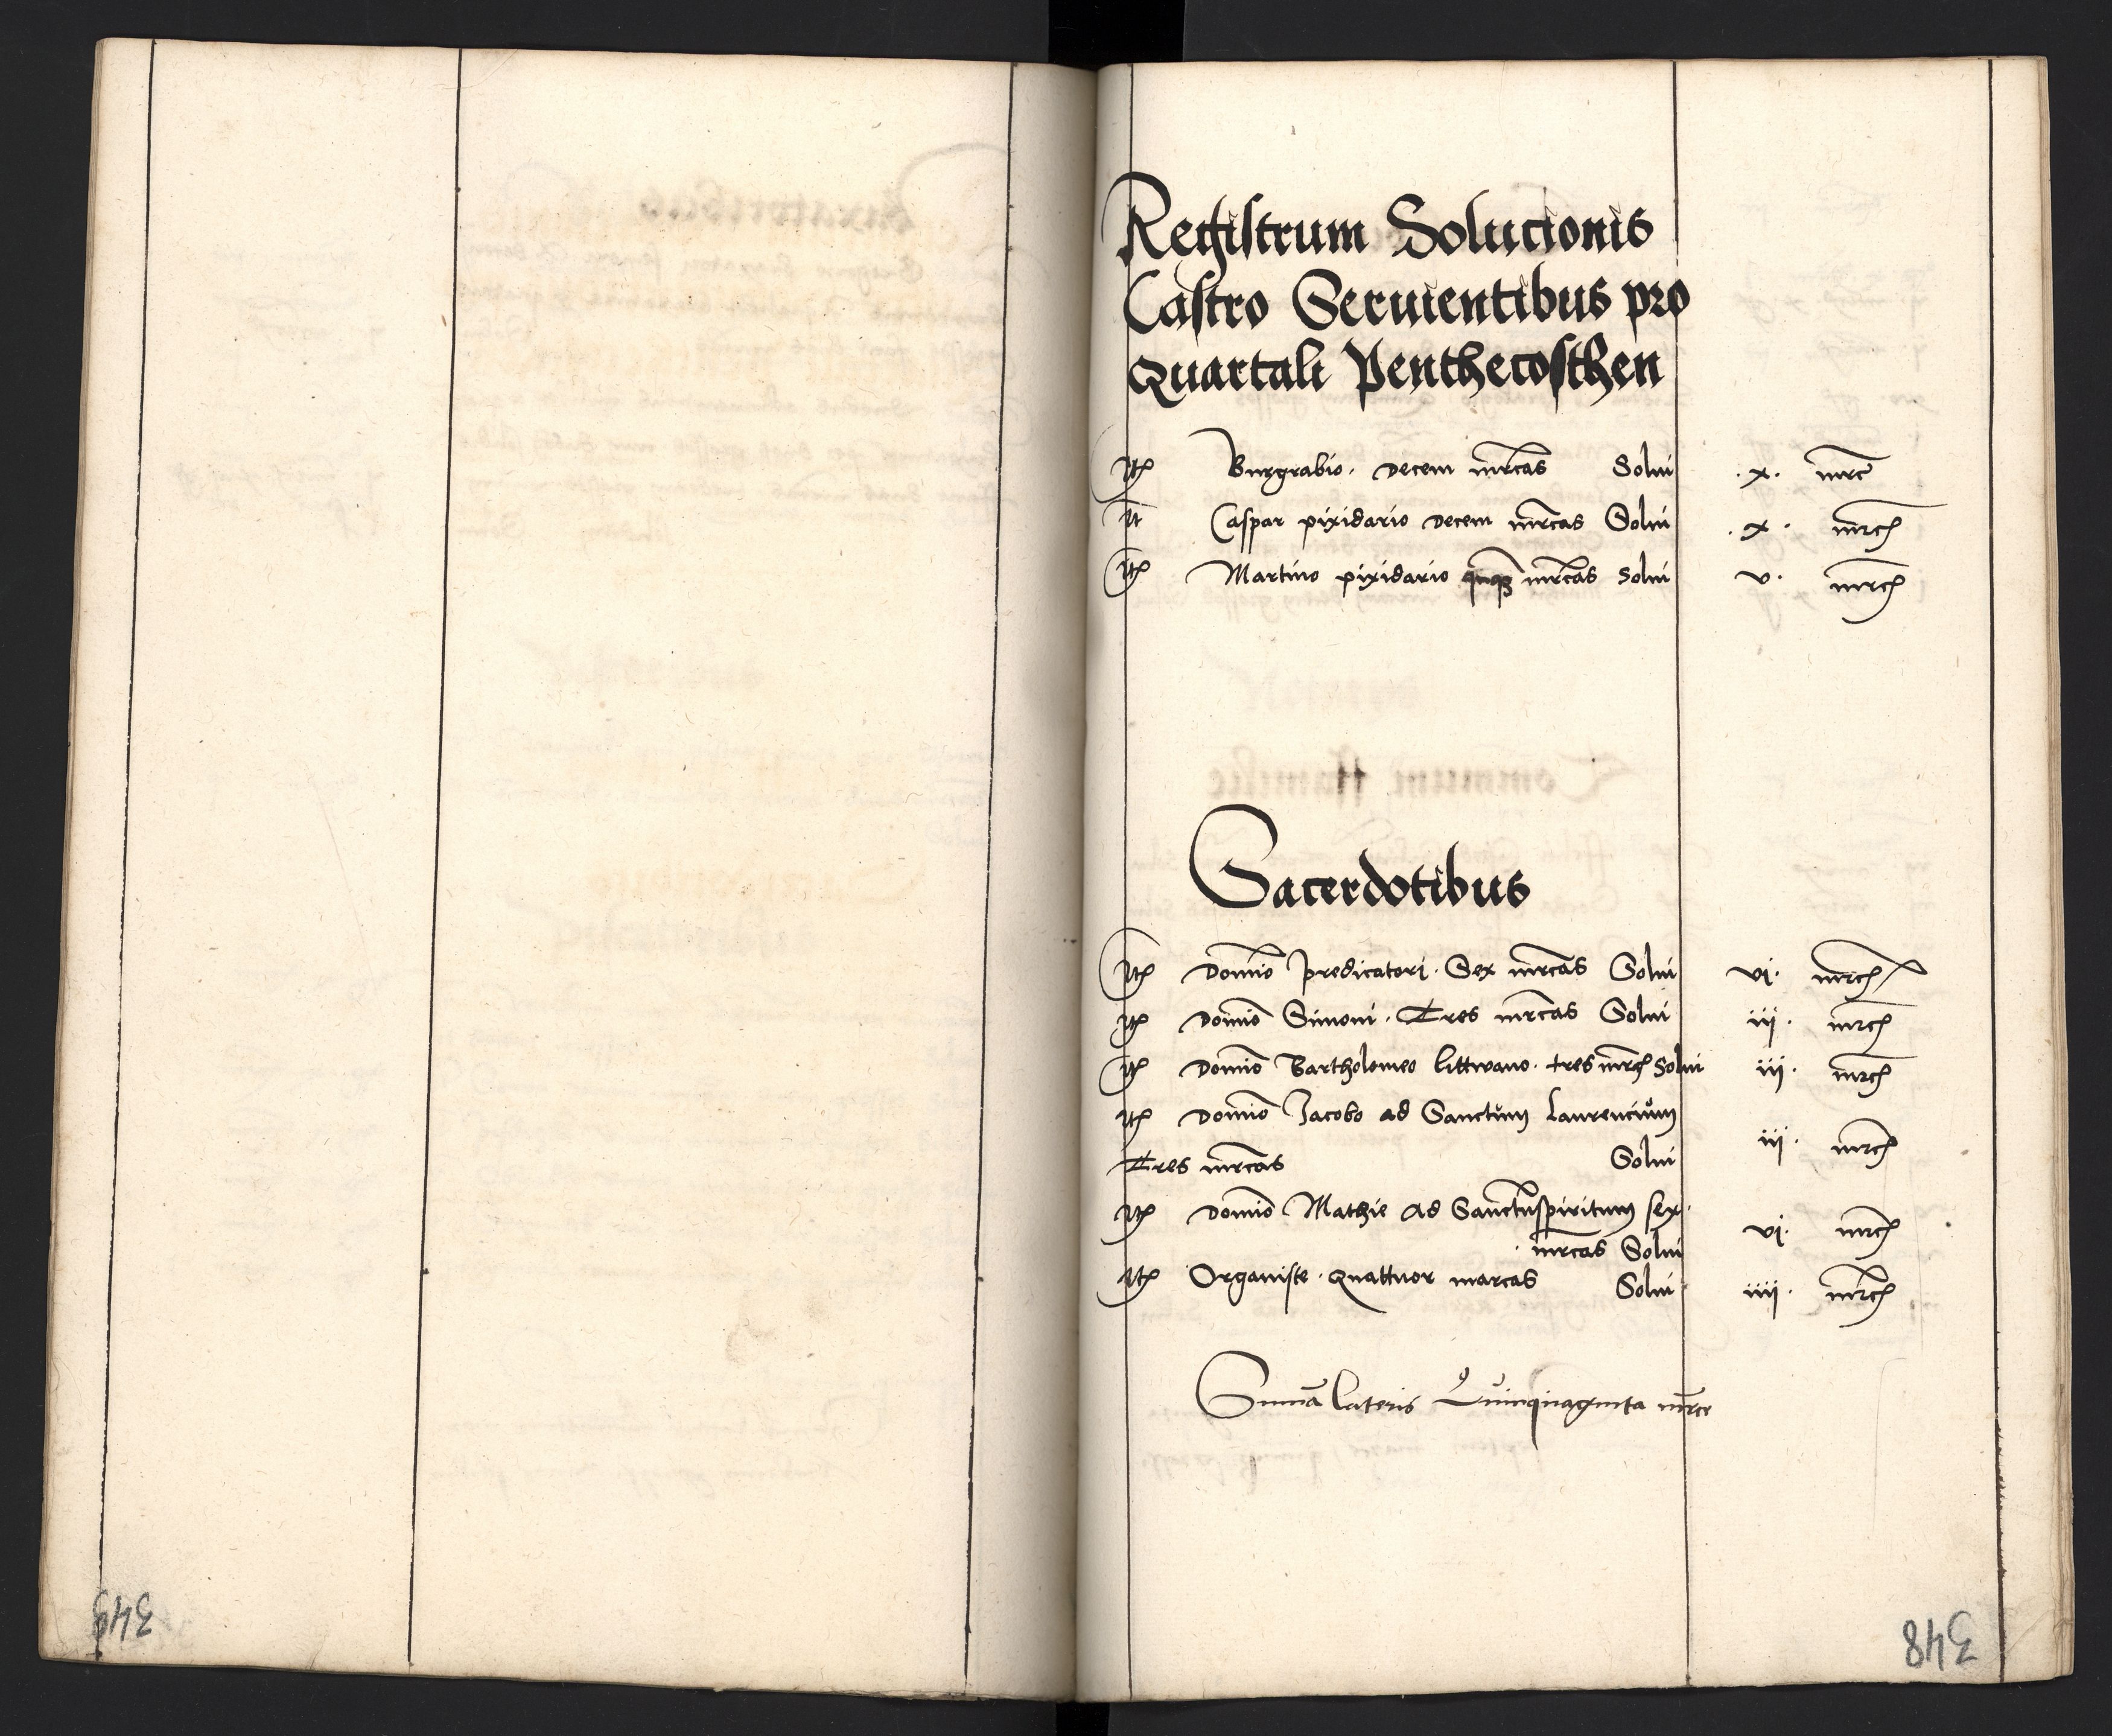 Registrum Solucionis
Castro Seruientibus pro
Quartali Penthecosthen
It Burgrabio. Decem mrcas Solui .x. mrc
It Caspar pixidario Decem mrcas Solui .x. mrc
It Martino pixidario quiqz mrcas Solui v. mrc
Sacerdotibus
It Domio predicatori. Sex mrcas Solui vj. mrc
It Domio Simoni. Tres mrcas Solui iij. mrc
It Domio Bartholomeo littwano. tres mrc Solui iij. mrc
It Domio Jacobo ad Sanctum Laurencium
Tres mrcas Solui iij. mrc
It Domio Mathie ad Sanctuspiritum sex.
mrcas Solui vj. mrc
It Organiste. quattuor marcas Solui iiij. mrc
Suma lateris Quinquaginta mrce
349
348